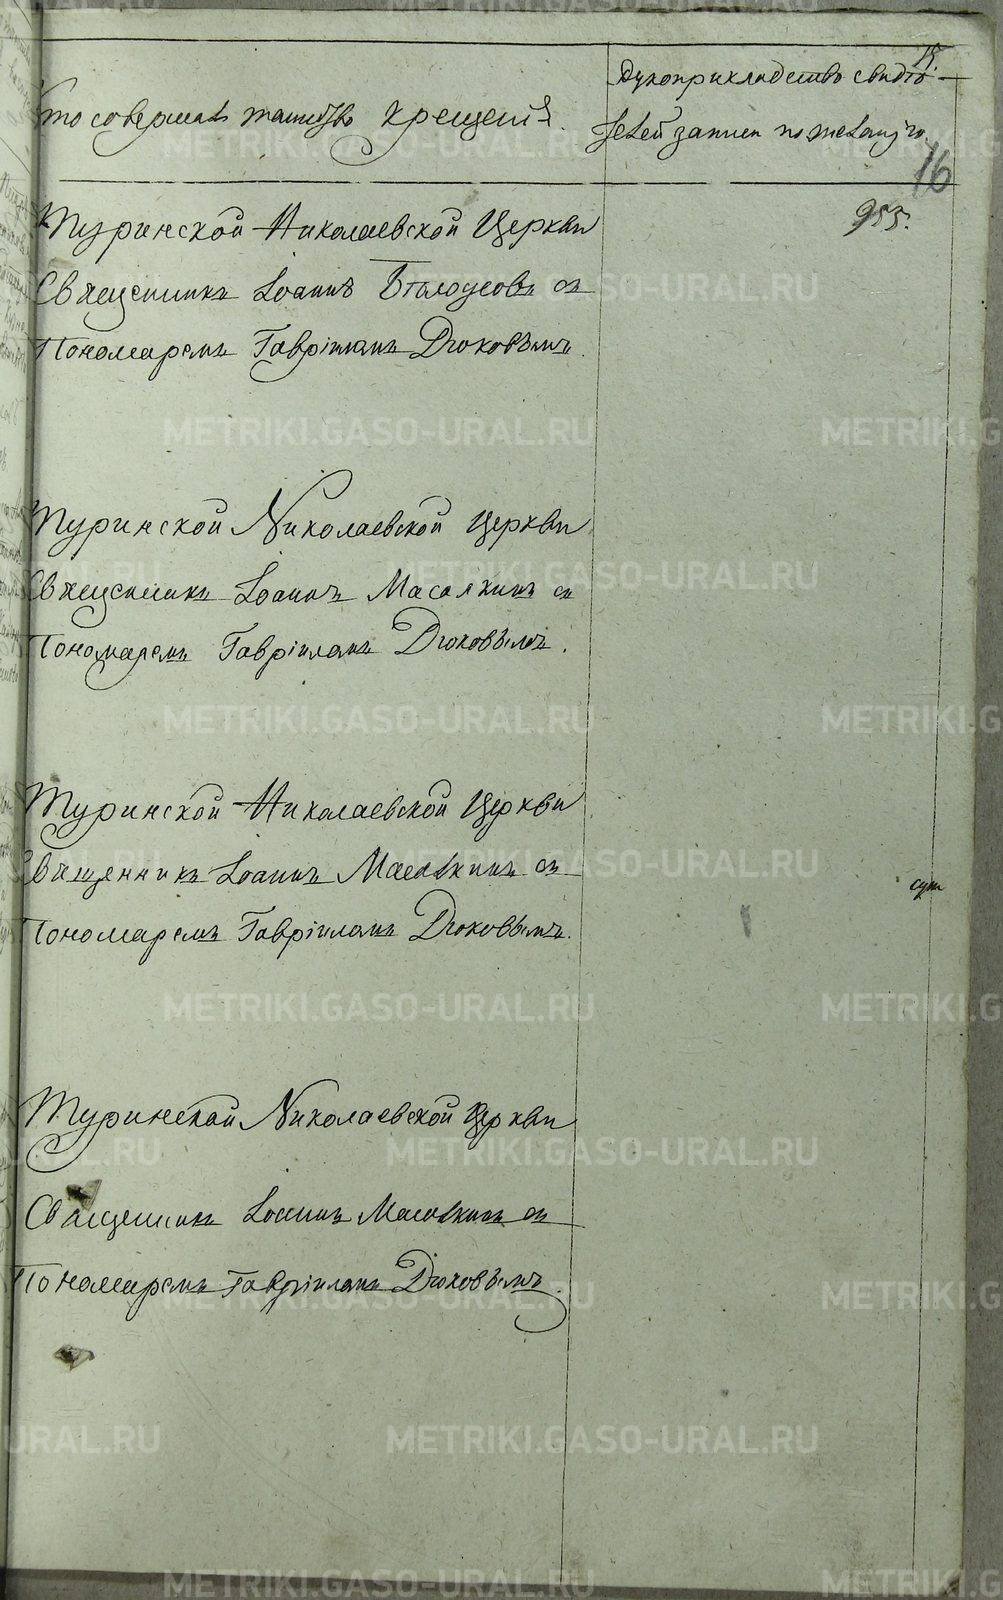 15.
16
Кто совершалъ таинство крещенія.
Рукоприкладство свидѣ-
телей записи по желанію.
953.
Туринской Николаевской Церкви
Священникъ Іоаннъ Бѣлоусовъ съ
Пономаремъ Гавріиломъ Дюковымъ.
Туринской Николаевской Церкви
Священникъ Іоаннъ Масалкинъ съ
Пономаремъ Гавріиломъ Дюковымъ.
Туринской Николаевской Церкви
Священникъ Іоаннъ Масалкинъ съ
Пономаремъ Гавріиломъ Дюковымъ.
Туринской Николаевской Церкви
Священникъ Іоаннъ Масалкинъ съ
Пономаремъ Гавріиломъ Дюковымъ.
METRIKI.GASO-URAL.RU